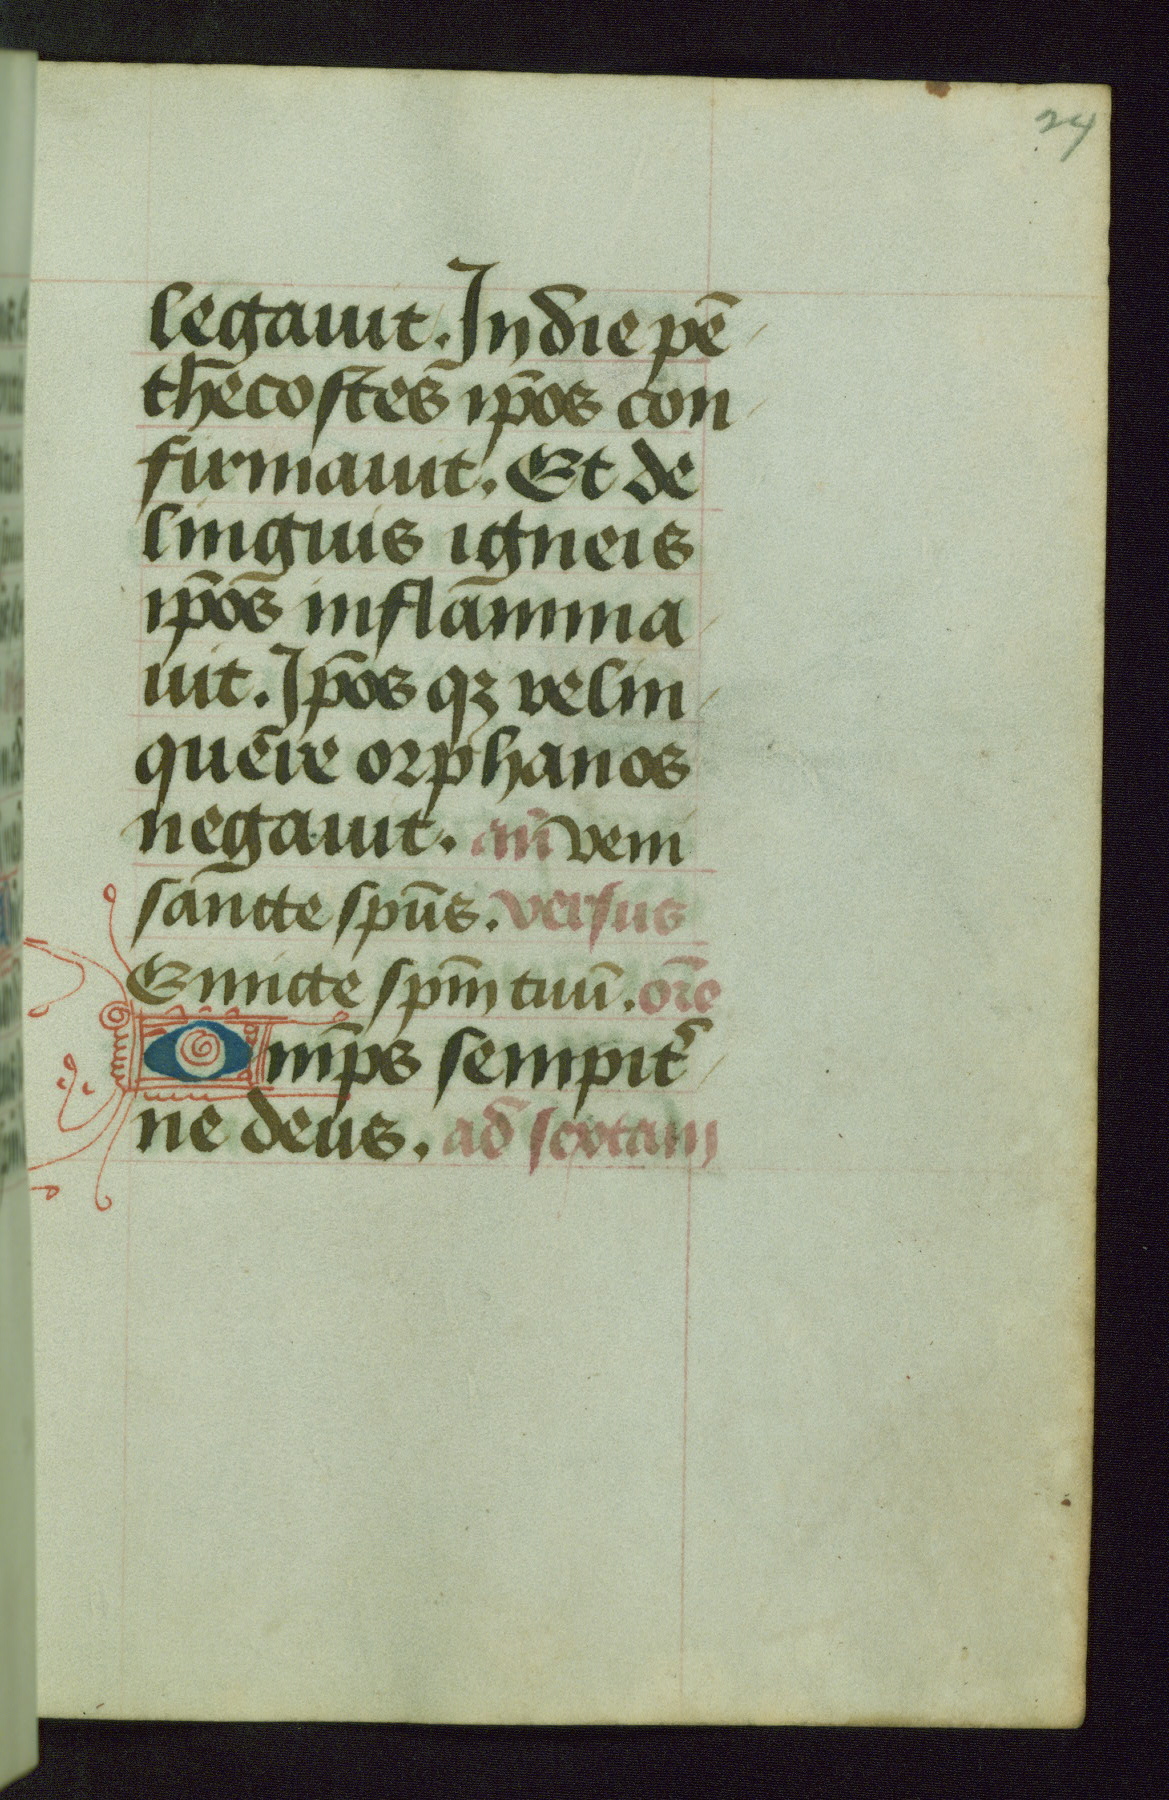 24
legauit. In die pē
thecostes ip̄os con
firmauit. Et de
linguis igneis
ip̄os inflāmma
uit. Ip̄os qꝫ velin
quere orphanos
negauit. an̄ veni
sancte spūs. versus
Emitte spm̄ tuū. or̄e
Omp̄s sempit̉
ne deus. ad sextam